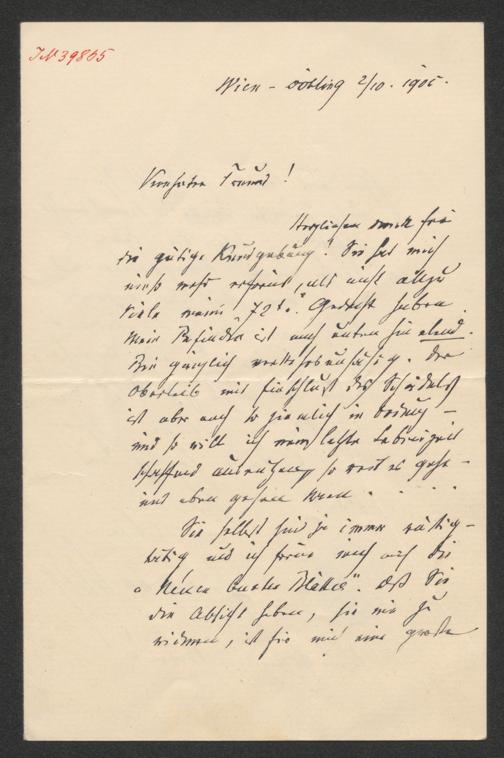 IN 39865
Wien – Döbling 2/10. 1905.
Verehrter Freund!
Herzlichen Dank für
die gütige Kundgebung! Sie hat mich
mehr erfreut, als nicht allzu
Viele meines "72t." Gedacht haben.
Mein Befinden ist nach unten hin elend.
Bin gänzlich verkehrsunfähig. Der
Oberleib mit Einschluß des Schädels
ist aber noch so ziemlich in Ordnung –
und so will ich meine letzte Lebenszeit
schaffend ausnützen, so weit es geht –
und eben gehen kann. . . . .
Sie selbst sind ja immer rüstig-
tätig und ich freue mich auf die
"Neuen Bunten Blätter". Daß Sie
die Absicht haben, sie mir zu
widmen, ist für mich eine große